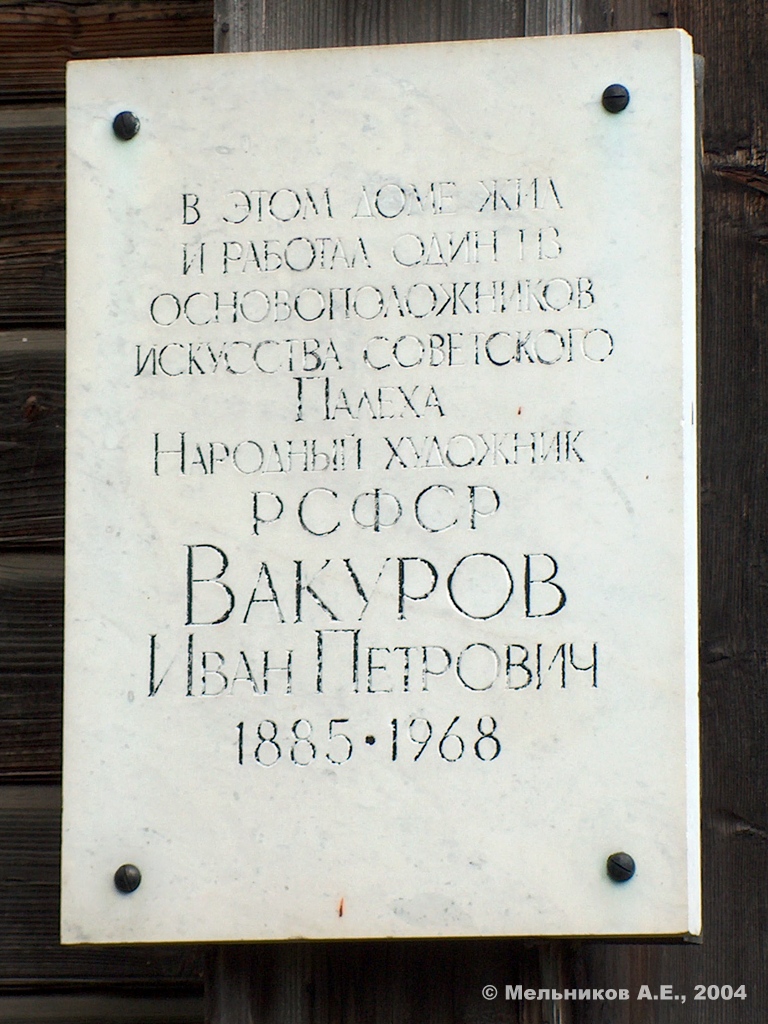 В ЭТОМ ДОМЕ ЖИЛ
И РАБОТАЛ ОДИН ИЗ
ОСНОВОПОЛОЖНИКОВ
ИСКУССТВА СОВЕТСКОГО
ПАЛЕХА
НАРОДНЫЙ ХУДОЖНИК
РСФСР
ВАКУРОВ
ИВАН ПЕТРОВИЧ
1885·1968
© Мельников А.Е., 2004